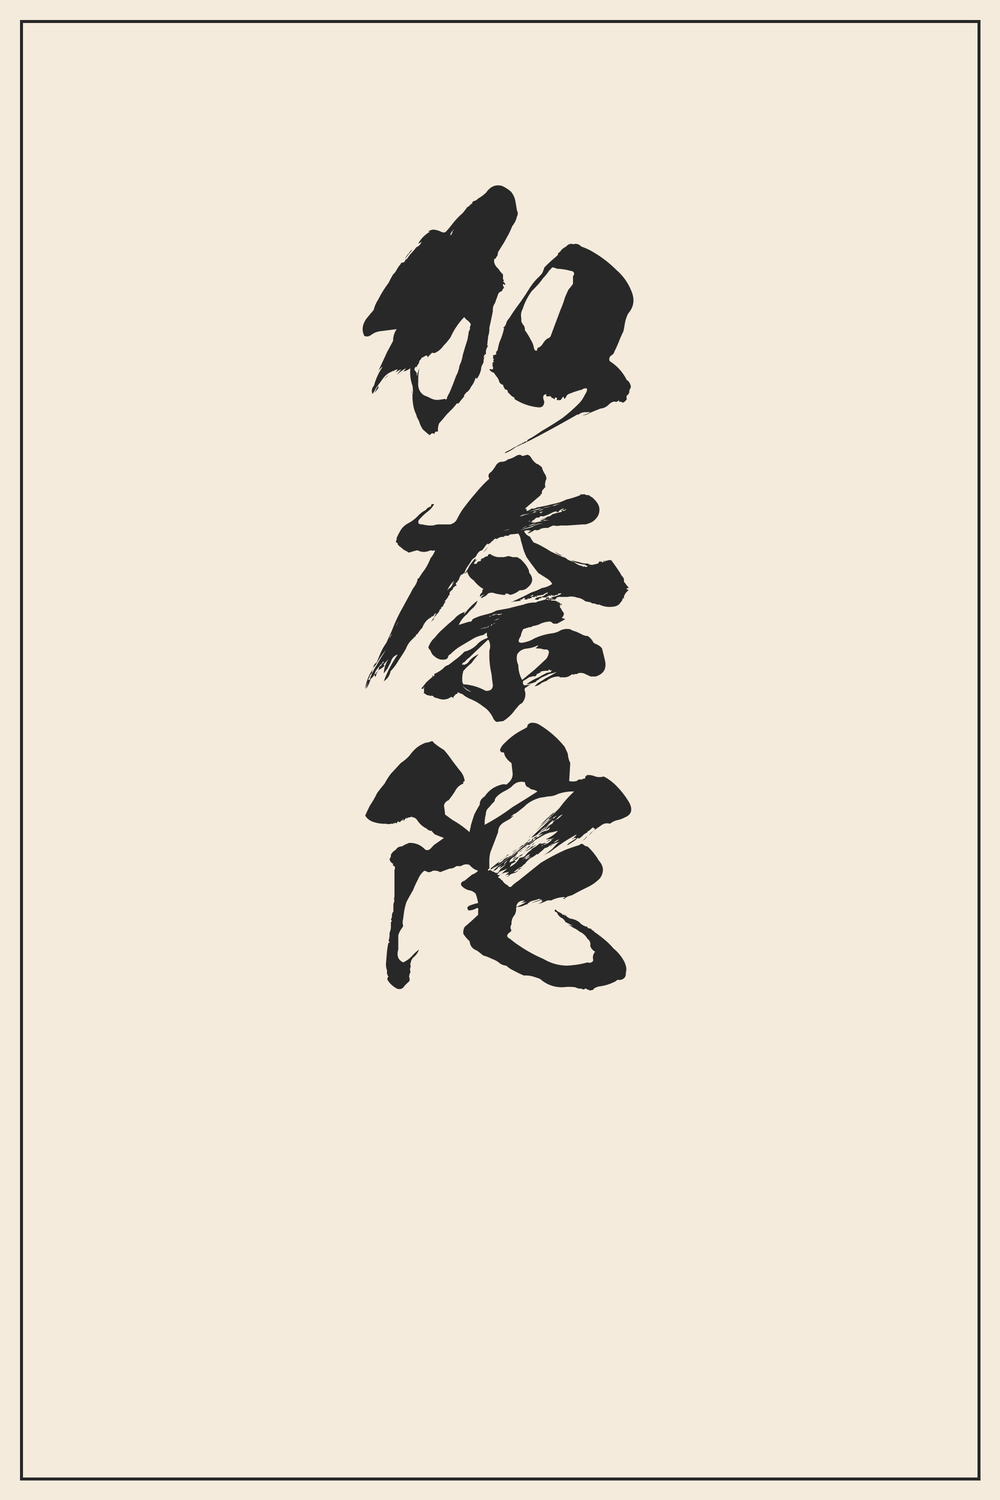 加奈陀